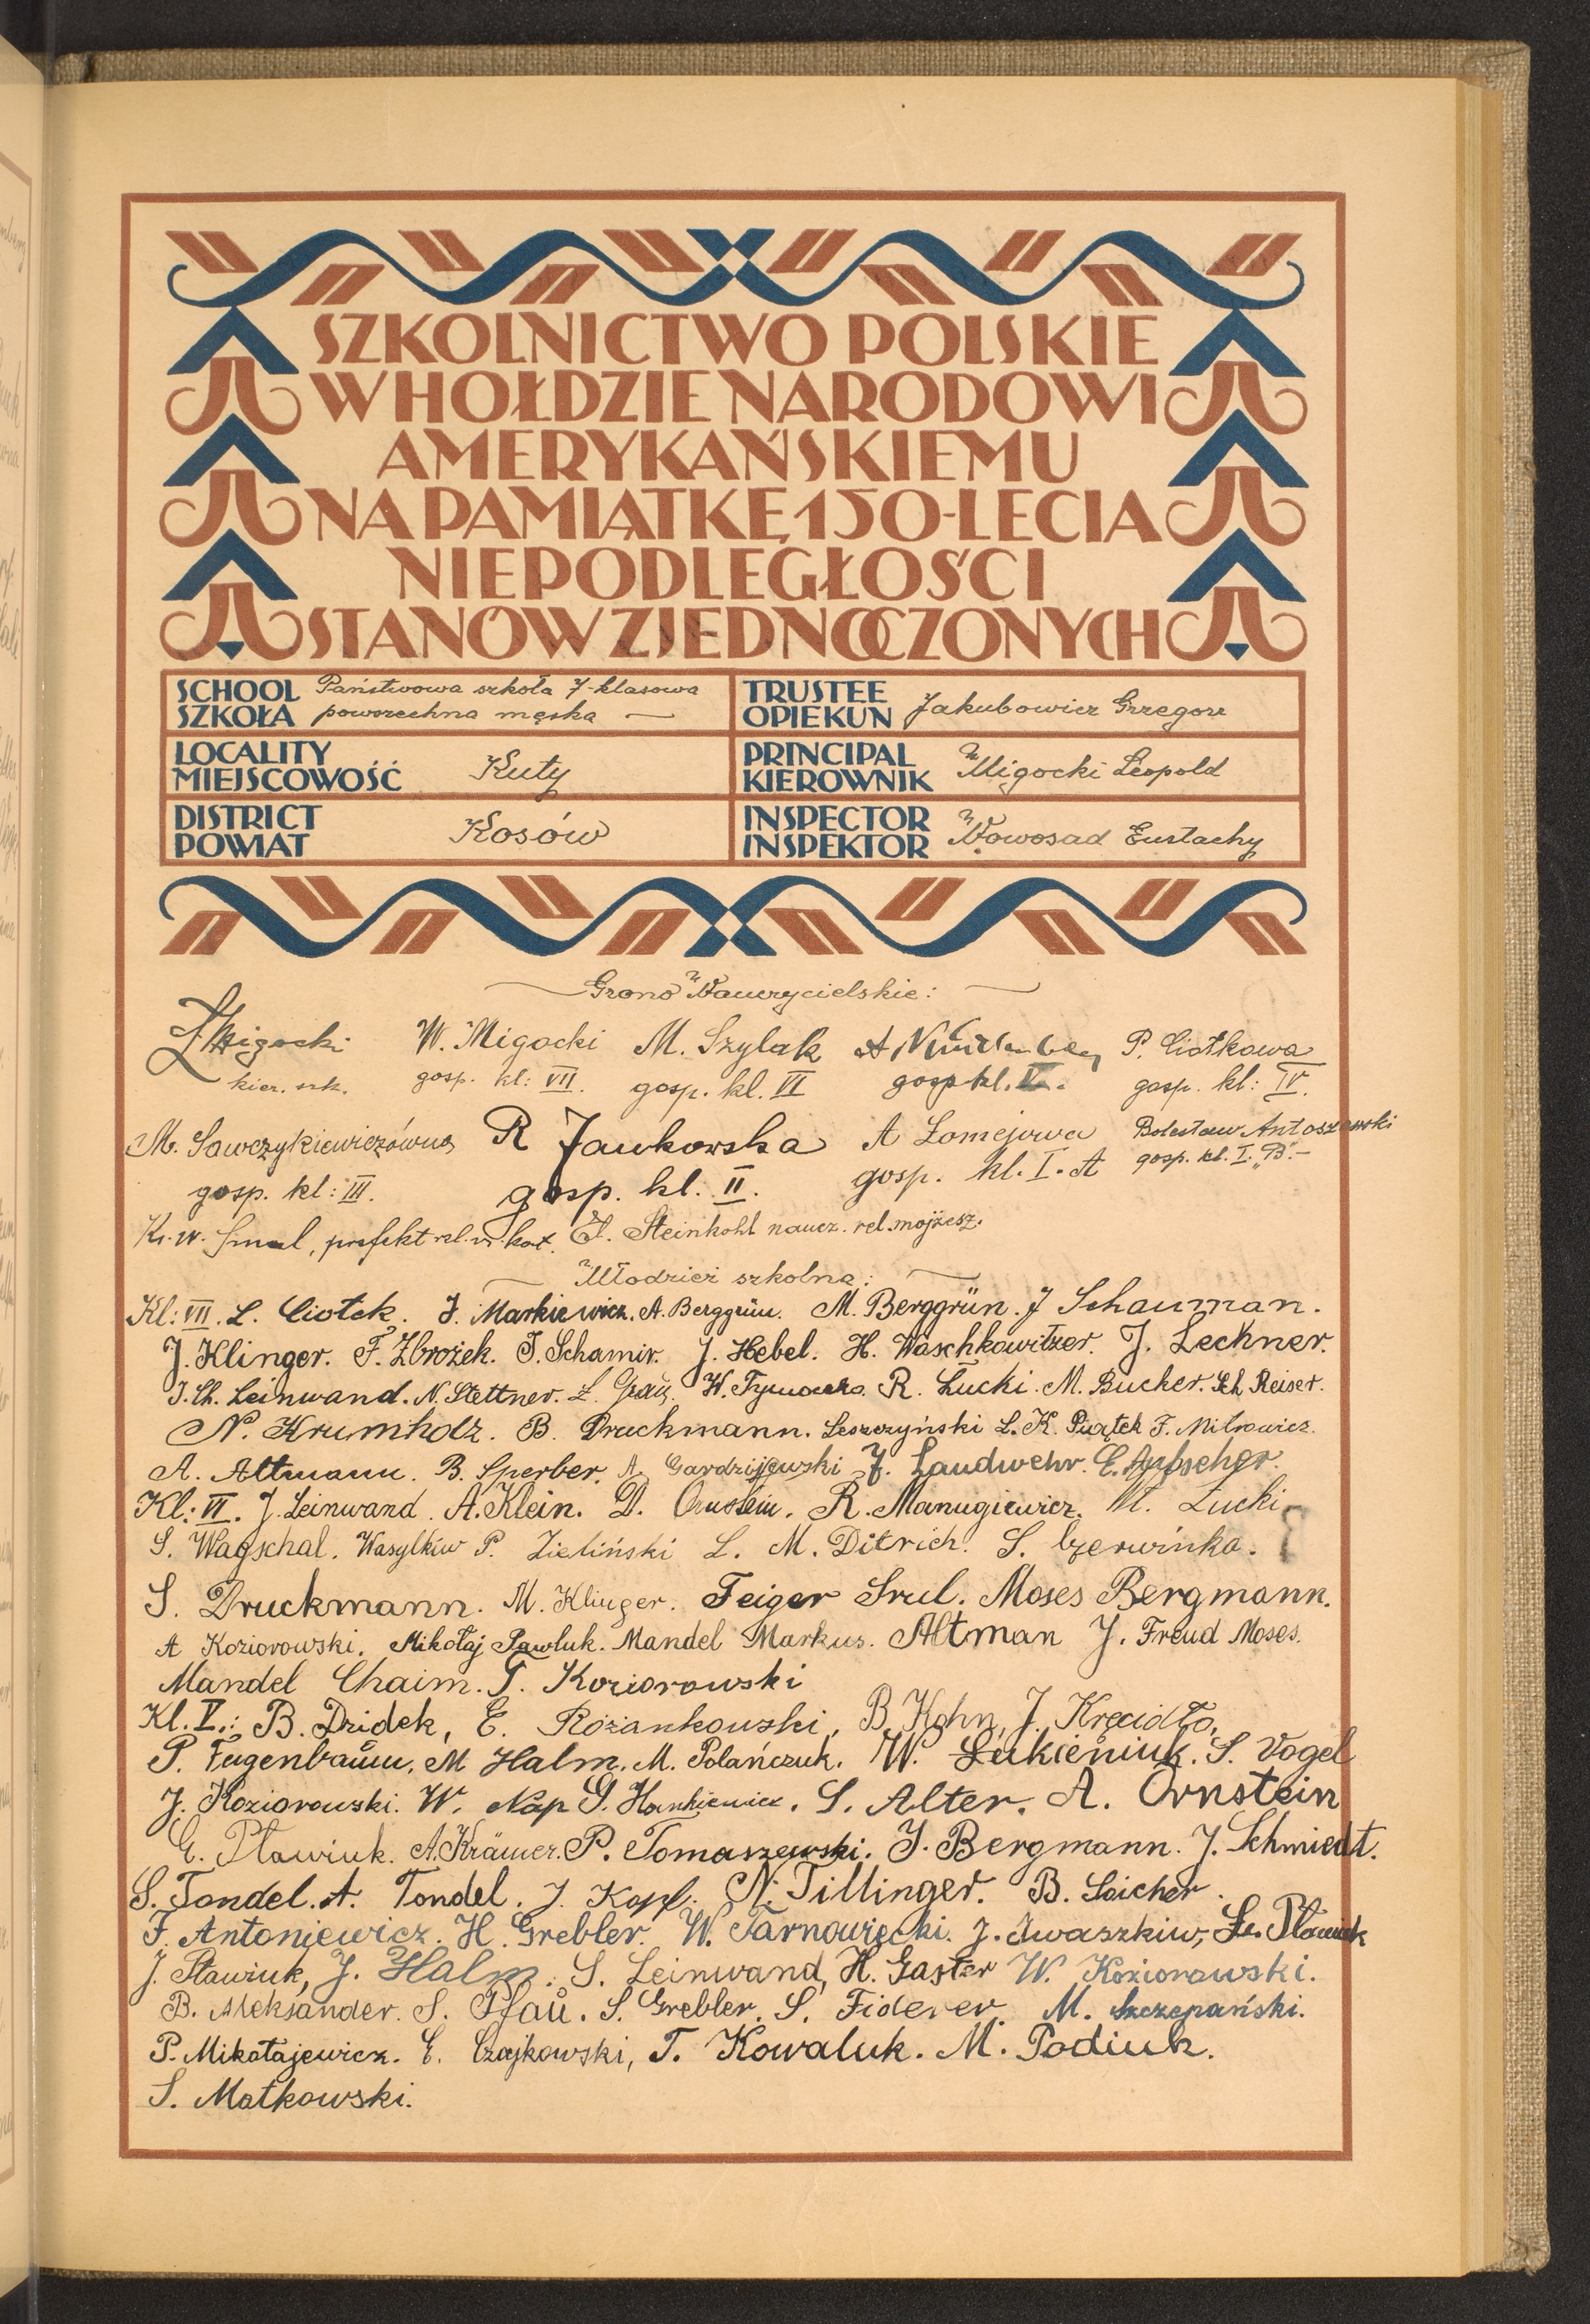 SZKOLNICTWO POLSKIE
W HOŁDZIE NARODOWI
AMERYKAŃSKIEMU
NA PAMIĄTKĘ 150-LECIA
NIEPODLEGŁOŚCI
STANÓW ZJEDNOCZONYCH
SCHOOL SZKOŁA Państwowa szkoła 7-klasowa
powszechna męska —
TRUSTEE OPIEKUN Jakubowicz Grzegorz
LOCALITY MIEJSCOWOŚĆ Kuty
PRINCIPAL KIEROWNIK Migocki Leopold
DISTRICT POWIAT Kosów
INSPECTOR INSPEKTOR Nowosad Eustachy
Grono Nauczycielskie:
L Migocki W. Migocki M. Szylak A P. Ciotkowa
kier. szk. gosp. kl: VII. gosp. kl. VI gosp kl. V. gosp. kl: IV.
M. Sawczykiewiczówna R Jankowska A Łomejowa Bolesław Antoszewski
gosp. kl: III. gosp. kl. II. gosp. kl. I. A gosp. kl. I. „B".-
Ks. W. Smal, prefekt rel. rz. kat. Steinkohl naucz. rel. mojżesz.
Młodzież szkolna:
Kl: VII. L. Ciołek. J. Markiewicz. A. Berggrün. M. Berggrün. J Schauman.
J. Klinger. F. Zbrożek. S. Schamir. J. Hebel. H. Waschkowitzer. J. Lechner.
J. Ch. Leinwand. N. Stettner. Ł. W. R. Łucki. M. Bucher. Sch. Reiser.
N. Krumholz. B. Druckmann. Leszczyński L. K. Piątek F. Mitrowicz.
A. Altmann. B. Sperber. A. Gardzijewski J. Landwehr. E.
Kl: VI. J. Leinwand. A. Klein. D. Ornstein. R. Manugiewicz. M. Łucki
S. Wagschal. Wasylkiw P. Zieliński L. M. Ditrich. S. Czerwinka.
S. Druckmann. M. Klinger. Feiger Srul. Moses Bergmann.
A Koziorowski. Mikołaj Pawluk. Mandel Markus. Altman J. Freud Moses.
Mandel Chaim. T. Koziorowski
Kl. V.: B. Dzidek, E. Rożankowski, B. Kohn, J. Kręcidło,
P. Fugenbaum, M Halm. M. Polańczuk. W. Łukieniuk. S. Vogel
J. Koziorowski. W. Nap G. Hankiewicz. S. Alter. A. Ornstein
E. Pławiuk. A. Krämer. P. Tomaszewski. J. Bergmann. J. Schmiedt.
S. Tondel. A. Tondel. J. Kopf. N. Tillinger. B. Soicher.
F. Antoniewicz. H. Grebler. W. Tarnowiecki. J. Iwaszkiw, Pławiuk
J. Pławiuk, J. Halm. S. Leinwand, H. Gaster W. Koziorowski.
B. Aleksander. S. Pfau. S. Grebler. S. Fiderer. M. Szczepański.
P. Mikołajewicz. E. Czajkowski, T. Kowaluk. M. Podiuk.
S. Matkowski.